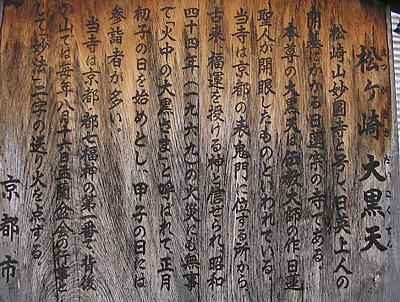 松ヶ崎 大黒天
松崎山妙圓寺と号し、日英上人の
開基にかかる日蓮宗の寺である。
本尊の大黒天は伝教大師の作、日蓮
聖人が開眼したものといわれている。
当寺は京都の表鬼門に位する所から、
古来、福運を授ける神と信ぜられ、昭和
四十四年(一九六九)の火災にも無事
で火中の大黒さまと呼ばれて正月
初子の日を始めとし、甲子の日には
参詣者が多い。
当寺は京都・都七福神の第一番で、背後
の山では毎年八月十六日盂蘭盆会の行事と
して妙法二字の送り火を点ずる。
京都市